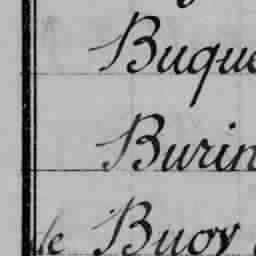 Buque
Burin
de Buoy